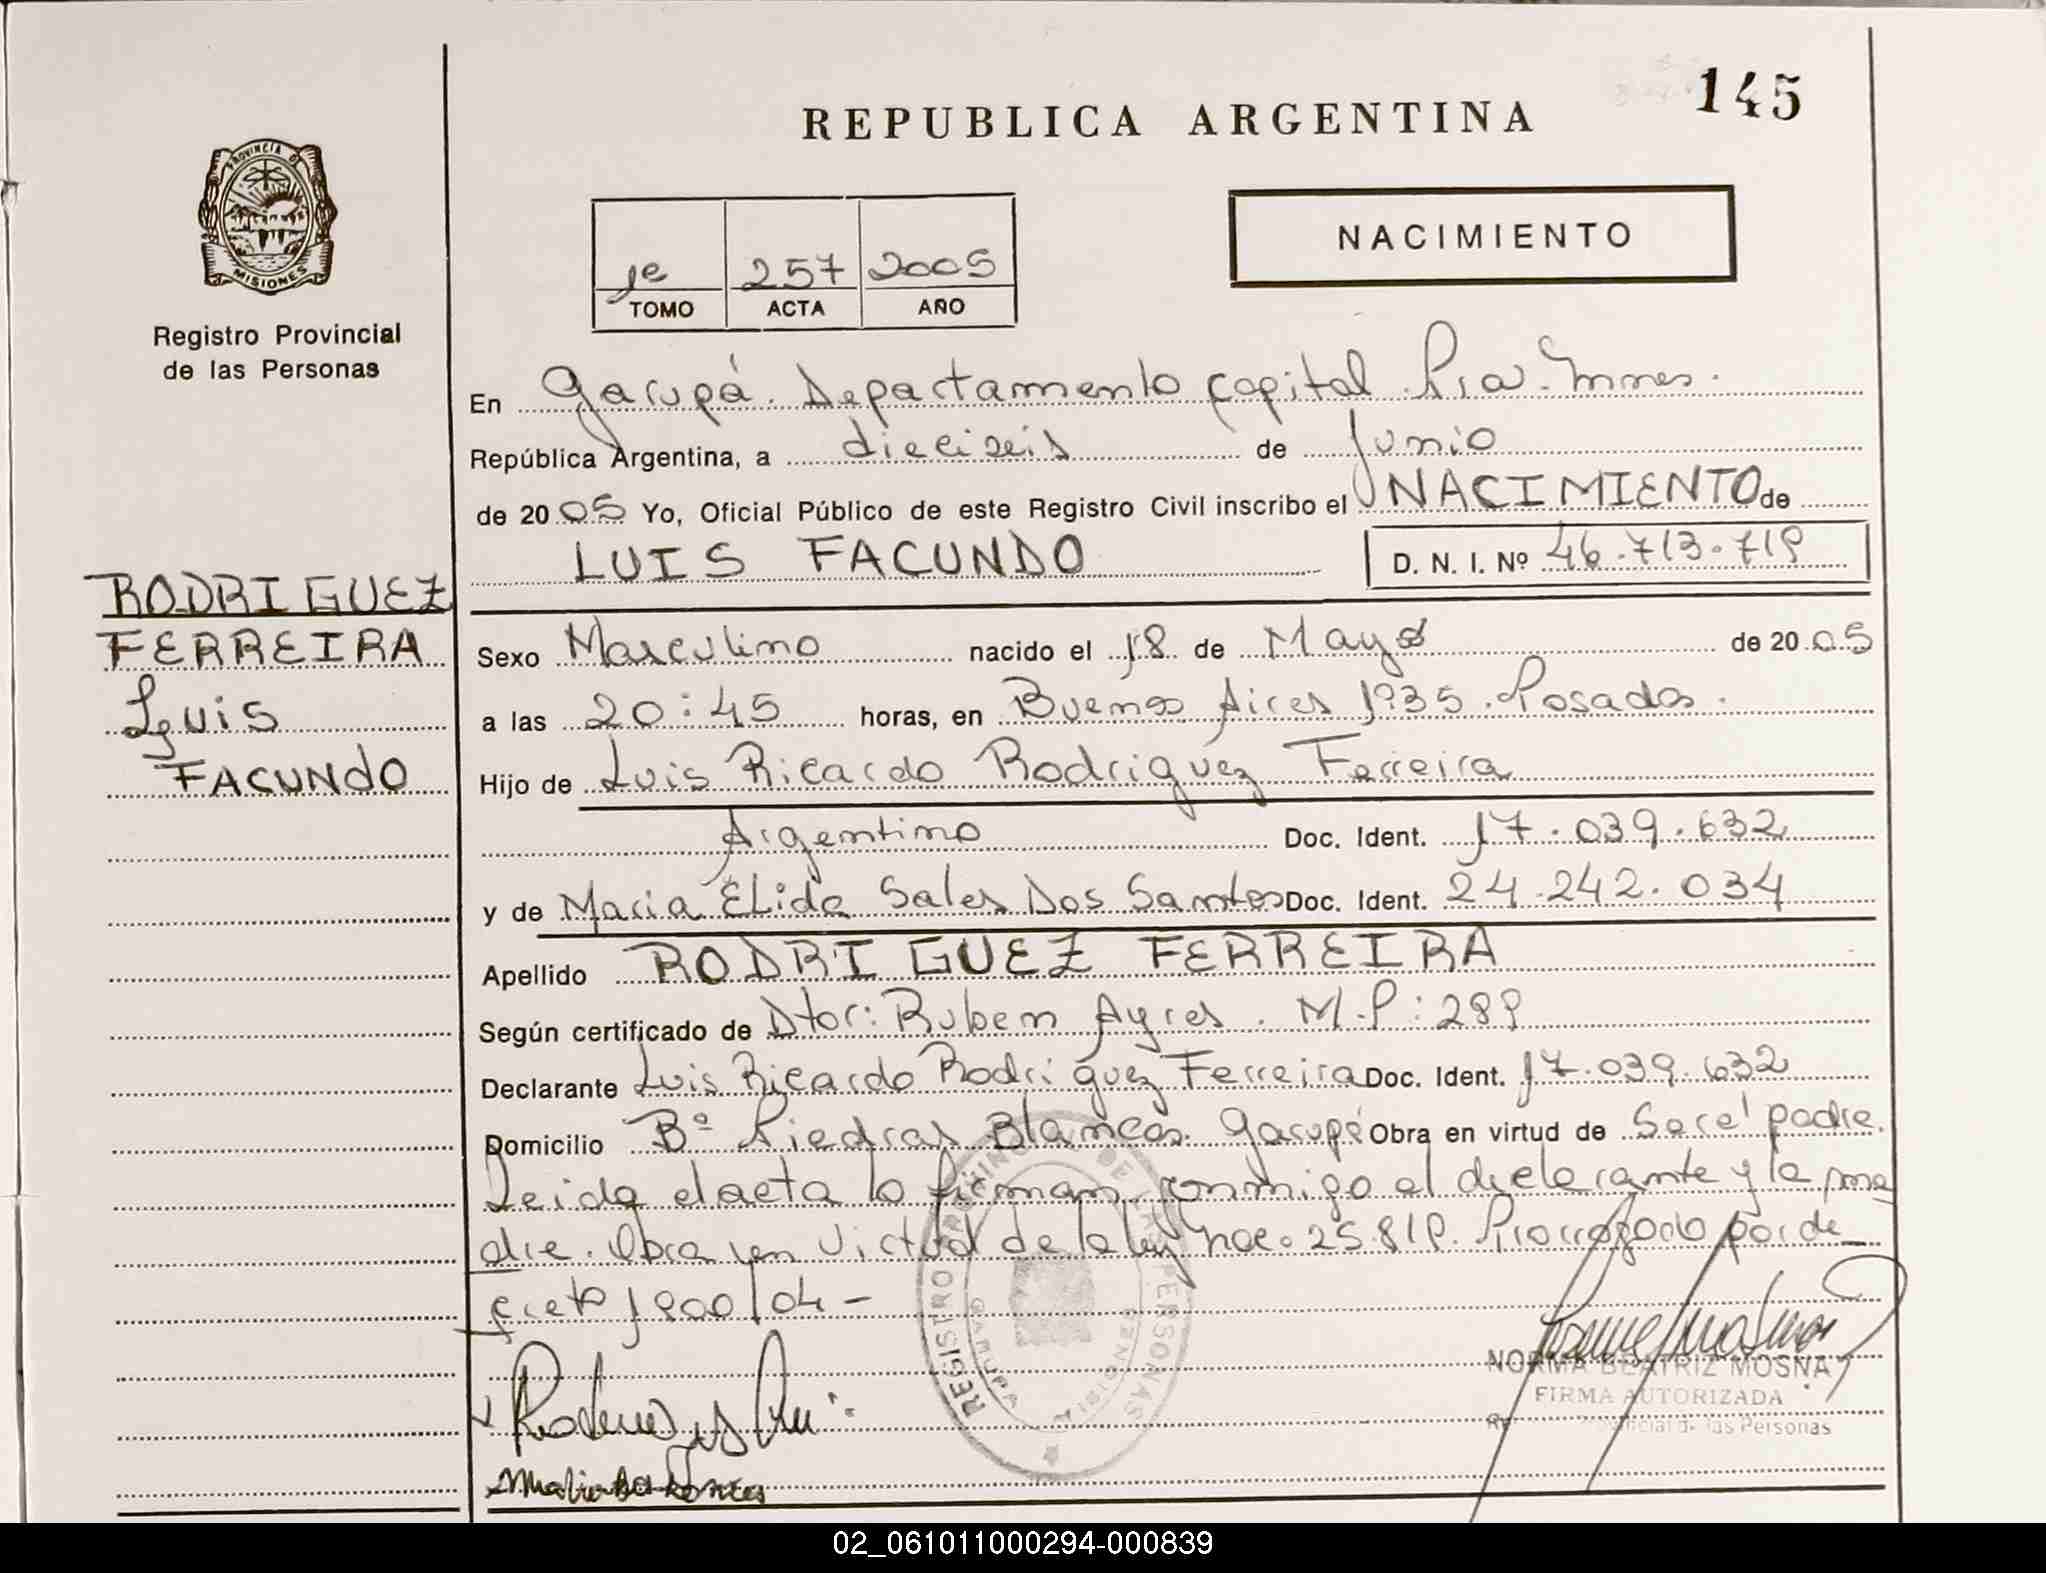 145
REPUBLICA ARGENTINA
PROVINCIA DE
MISIONES
Registro Provincial
de las Personas
1e 257 2005
TOMO ACTA AÑO
NACIMIENTO
En Garupá. Departamento Capital. Pia. Mnes.
República Argentina, a dieciseis de Junio
de 2005 Yo, Oficial Público de este Registro Civil inscribo el NACIMIENTO de
LUIS FACUNDO D. N. I. Nº 46.713.719
RODRIGUEZ
FERREIRA
Luis
FACUNDO
Sexo Masculino nacido el 18 de Mayo de 2005
a las 20:45 horas, en Buenos Aires 1935. Posadas.
Hijo de Luis Ricardo Rodriguez Ferreira
Argentino Doc. Ident. 17.039.632
y de Maria ELida Sales Dos Santos Doc. Ident. 24.242.034
Apellido RODRIGUEZ FERREIRA
Según certificado de Dtor: Ruben Ayres. M.P: 289
Declarante Luis Ricardo Rodriguez Ferreira Doc. Ident. 17.039.632
Domicilio Bº Piedras Blancas Garupá Obra en virtud de Ser el padre.
Leida el acta la firman conmigo el declarante y la ma
dre. Obra en virtud de la ley nac. 25.819. Prorrogado por de
creto 1900/04 -
REGISTRO PROVINCIAL DE LAS PERSONAS
GARUPA
MISIONES
NORMA BEATRIZ MOSNA
FIRMA AUTORIZADA
de las Personas
02_061011000294-000839